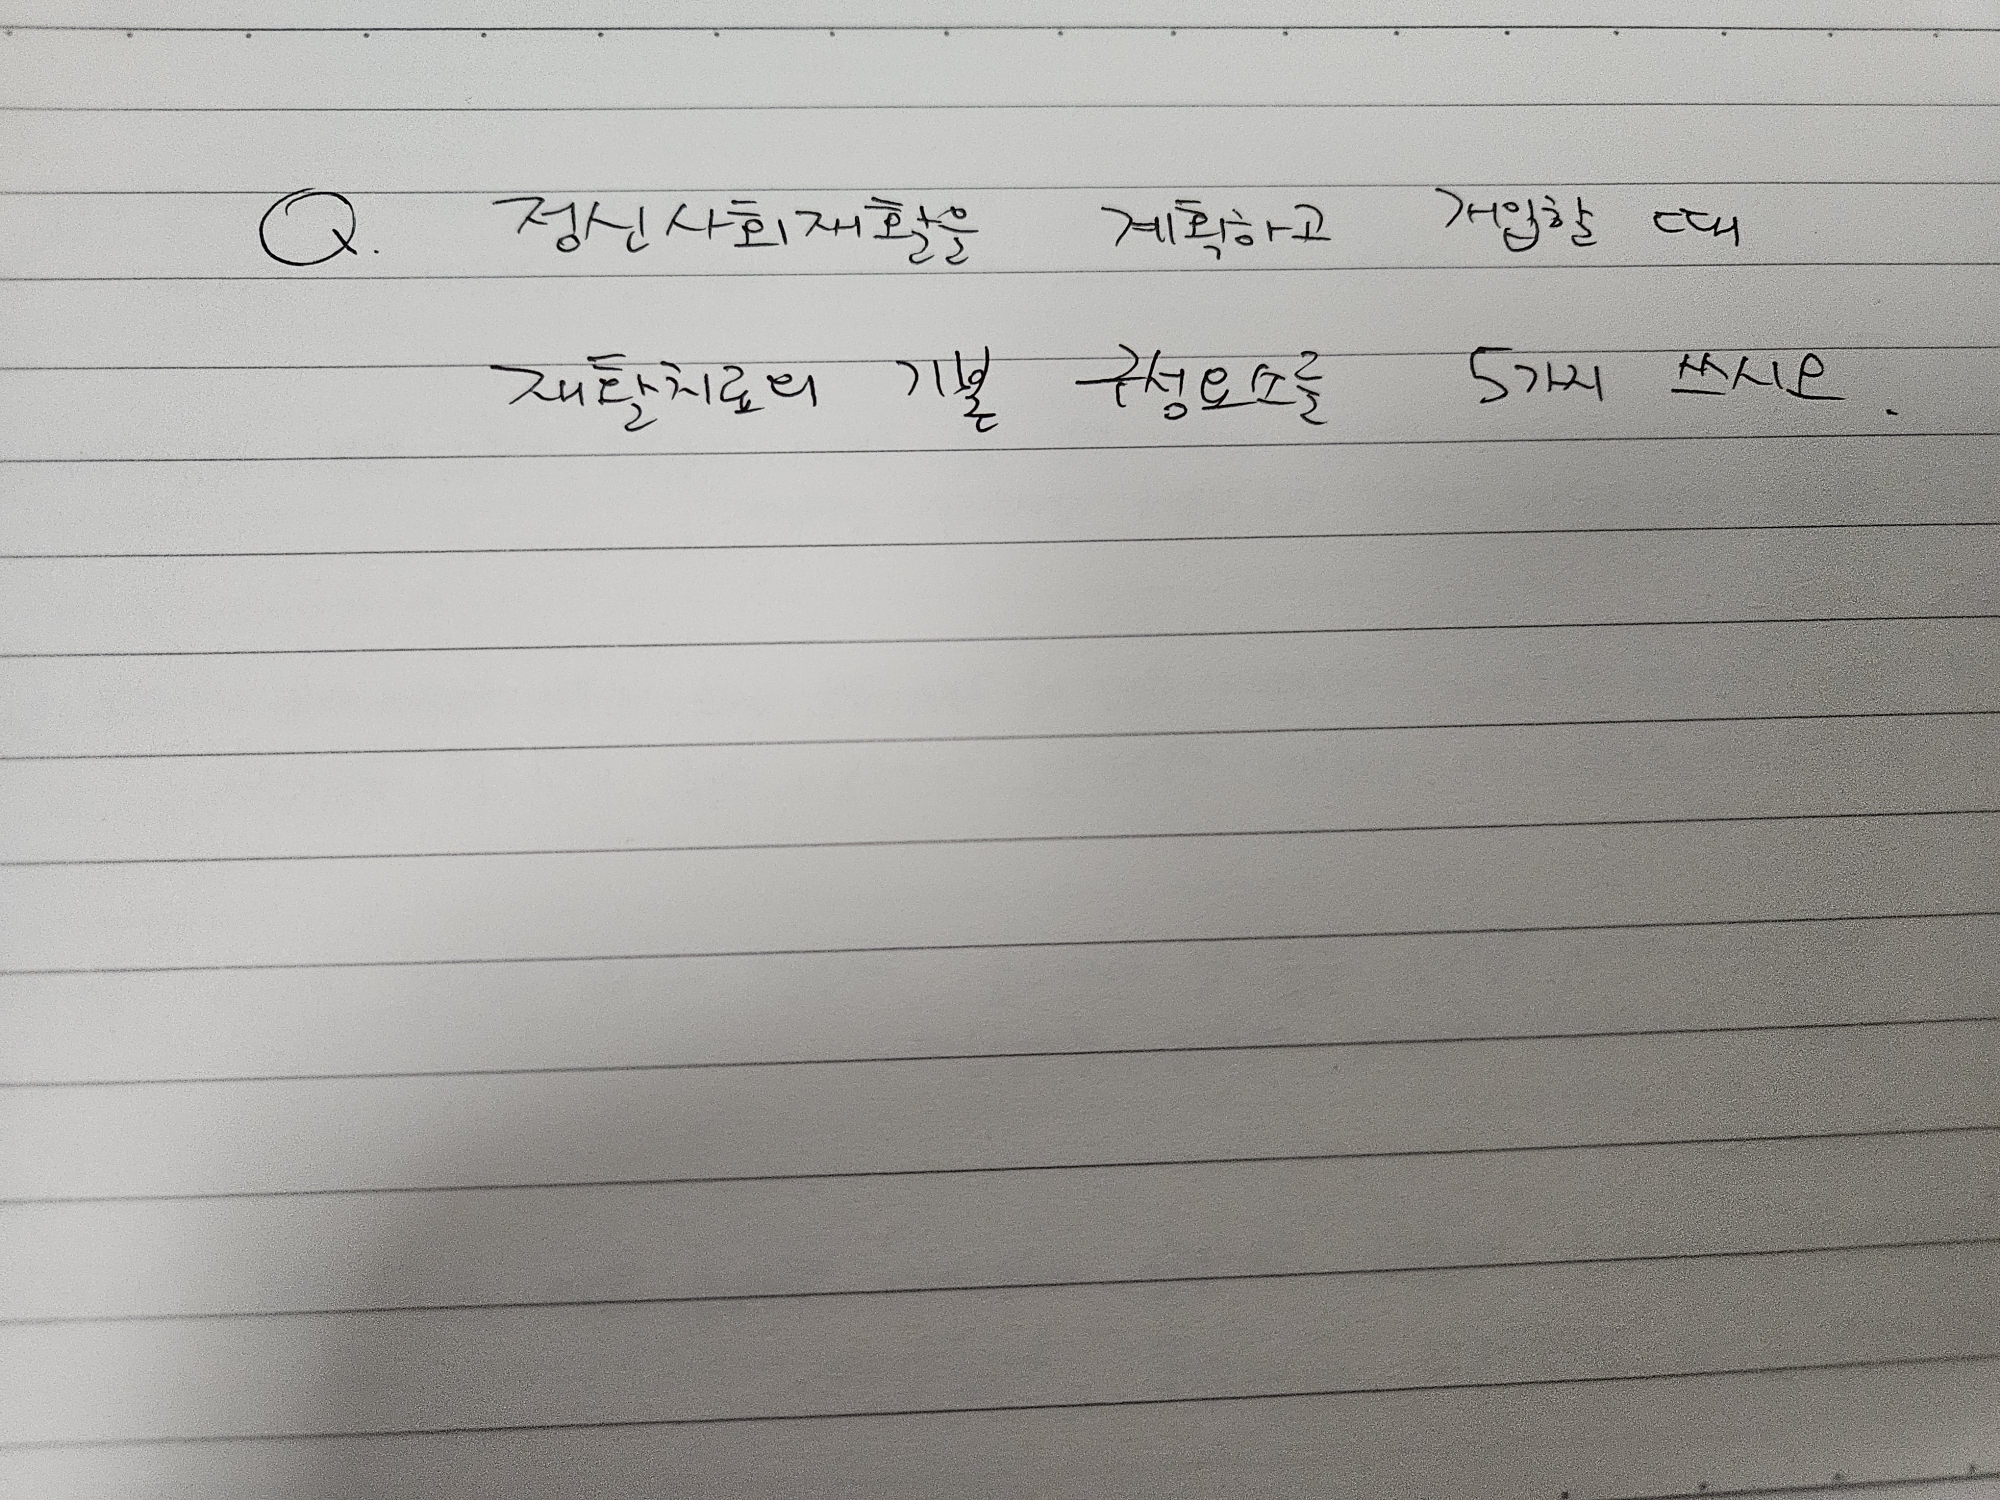 Q. 정신사회재활을 계획하고 개입할 때
재활치료의 기본 구성요소를 5가지 쓰시오.